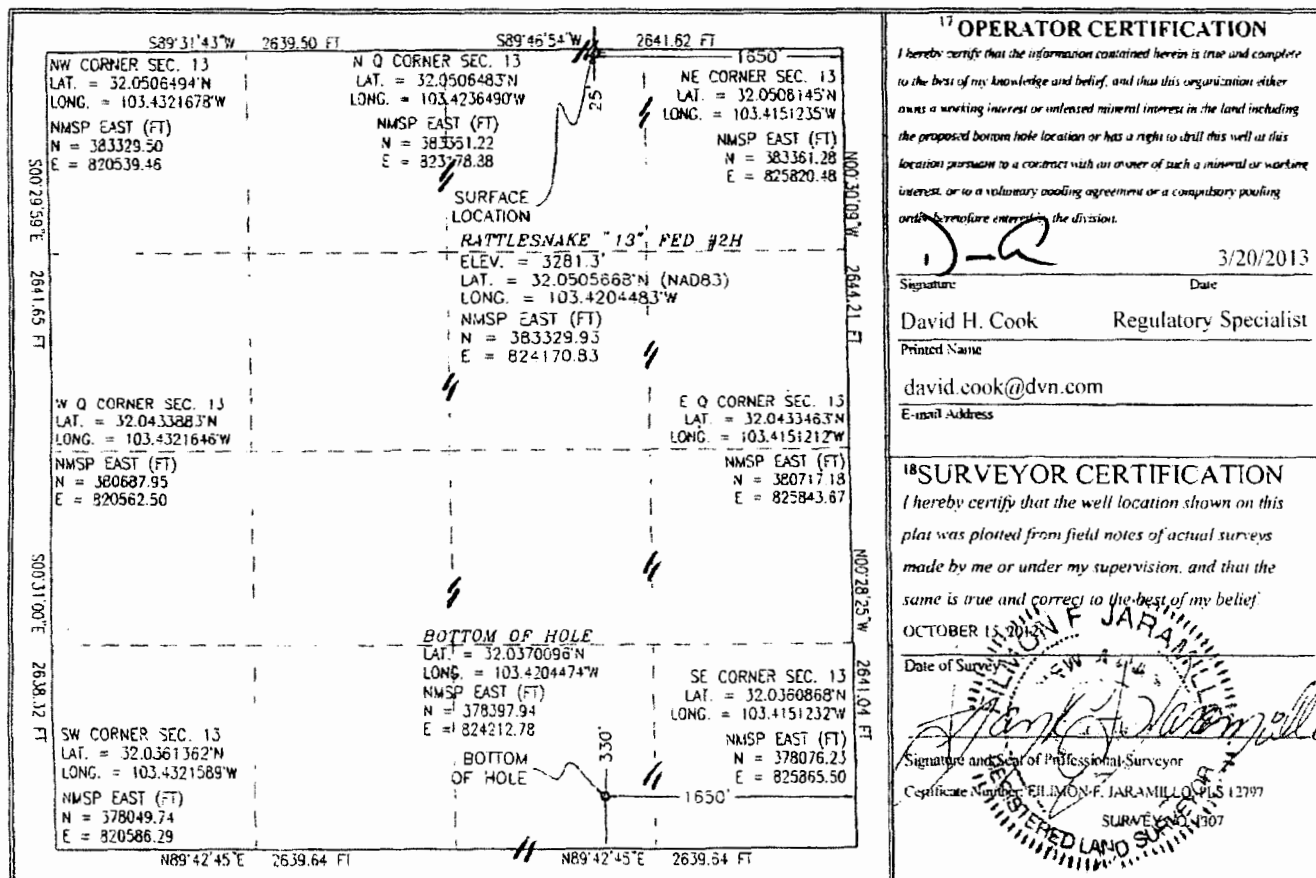 S89°31'43"W 2639.50 FT
S89°46'54"W 2641.62 FT
NW CORNER SEC. 13
LAT. = 32.0506494°N
LONG. = 103.4321678°W
NMSP EAST (FT)
N = 383329.50
E = 820539.46
N Q CORNER SEC. 13
LAT. = 32.0506483°N
LONG. = 103.4236490°W
NMSP EAST (FT)
N = 383351.22
E = 823178.38
1650'
25'
NE CORNER SEC. 13
LAT. = 32.0508145°N
LONG. = 103.4151235°W
NMSP EAST (FT)
N = 383361.28
E = 825820.48
S00°29'59"E 2641.65 FT
N00°30'09"W 2644.21 FT
SURFACE
LOCATION
RATTLESNAKE "13" FED #2H
ELEV. = 3281.3'
LAT. = 32.0505668°N (NAD83)
LONG. = 103.4204483°W
NMSP EAST (FT)
N = 383329.93
E = 824170.83
W Q CORNER SEC. 13
LAT. = 32.0433883°N
LONG. = 103.4321646°W
NMSP EAST (FT)
N = 380687.95
E = 820562.50
E Q CORNER SEC. 13
LAT. = 32.0433463°N
LONG. = 103.4151212°W
NMSP EAST (FT)
N = 380717.18
E = 825843.67
S00°31'00"E 2638.32 FT
N00°28'25"W 2641.04 FT
BOTTOM OF HOLE
LAT. = 32.0370096°N
LONG. = 103.4204474°W
NMSP EAST (FT)
N = 378397.94
E = 824212.78
SE CORNER SEC. 13
LAT. = 32.0360868°N
LONG. = 103.4151232°W
NMSP EAST (FT)
N = 378076.23
E = 825865.50
SW CORNER SEC. 13
LAT. = 32.0361362°N
LONG. = 103.4321589°W
NMSP EAST (FT)
N = 378049.74
E = 820586.29
BOTTOM
OF HOLE
330'
1650'
N89°42'45"E 2639.64 FT
N89°42'45"E 2639.64 FT
17 OPERATOR CERTIFICATION
I hereby certify that the information contained herein is true and complete
to the best of my knowledge and belief, and that this organization either
owns a working interest or unleased mineral interest in the land including
the proposed bottom hole location or has a right to drill this well at this
location pursuant to a contract with an owner of such a mineral or working
interest, or to a voluntary pooling agreement or a compulsory pooling
order heretofore entered by the division.
3/20/2013
Signature Date
David H. Cook Regulatory Specialist
Printed Name
david.cook@dvn.com
E-mail Address
18 SURVEYOR CERTIFICATION
I hereby certify that the well location shown on this
plat was plotted from field notes of actual surveys
made by me or under my supervision, and that the
same is true and correct to the best of my belief
OCTOBER 15, 2012
Date of Survey
FILIMON F JARAMILLO
Signature and Seal of Professional Surveyor
Certificate Number: FILIMON F. JARAMILLO, PLS 12797
SURVEY NO. 1307
REGISTERED LAND SURVEYOR